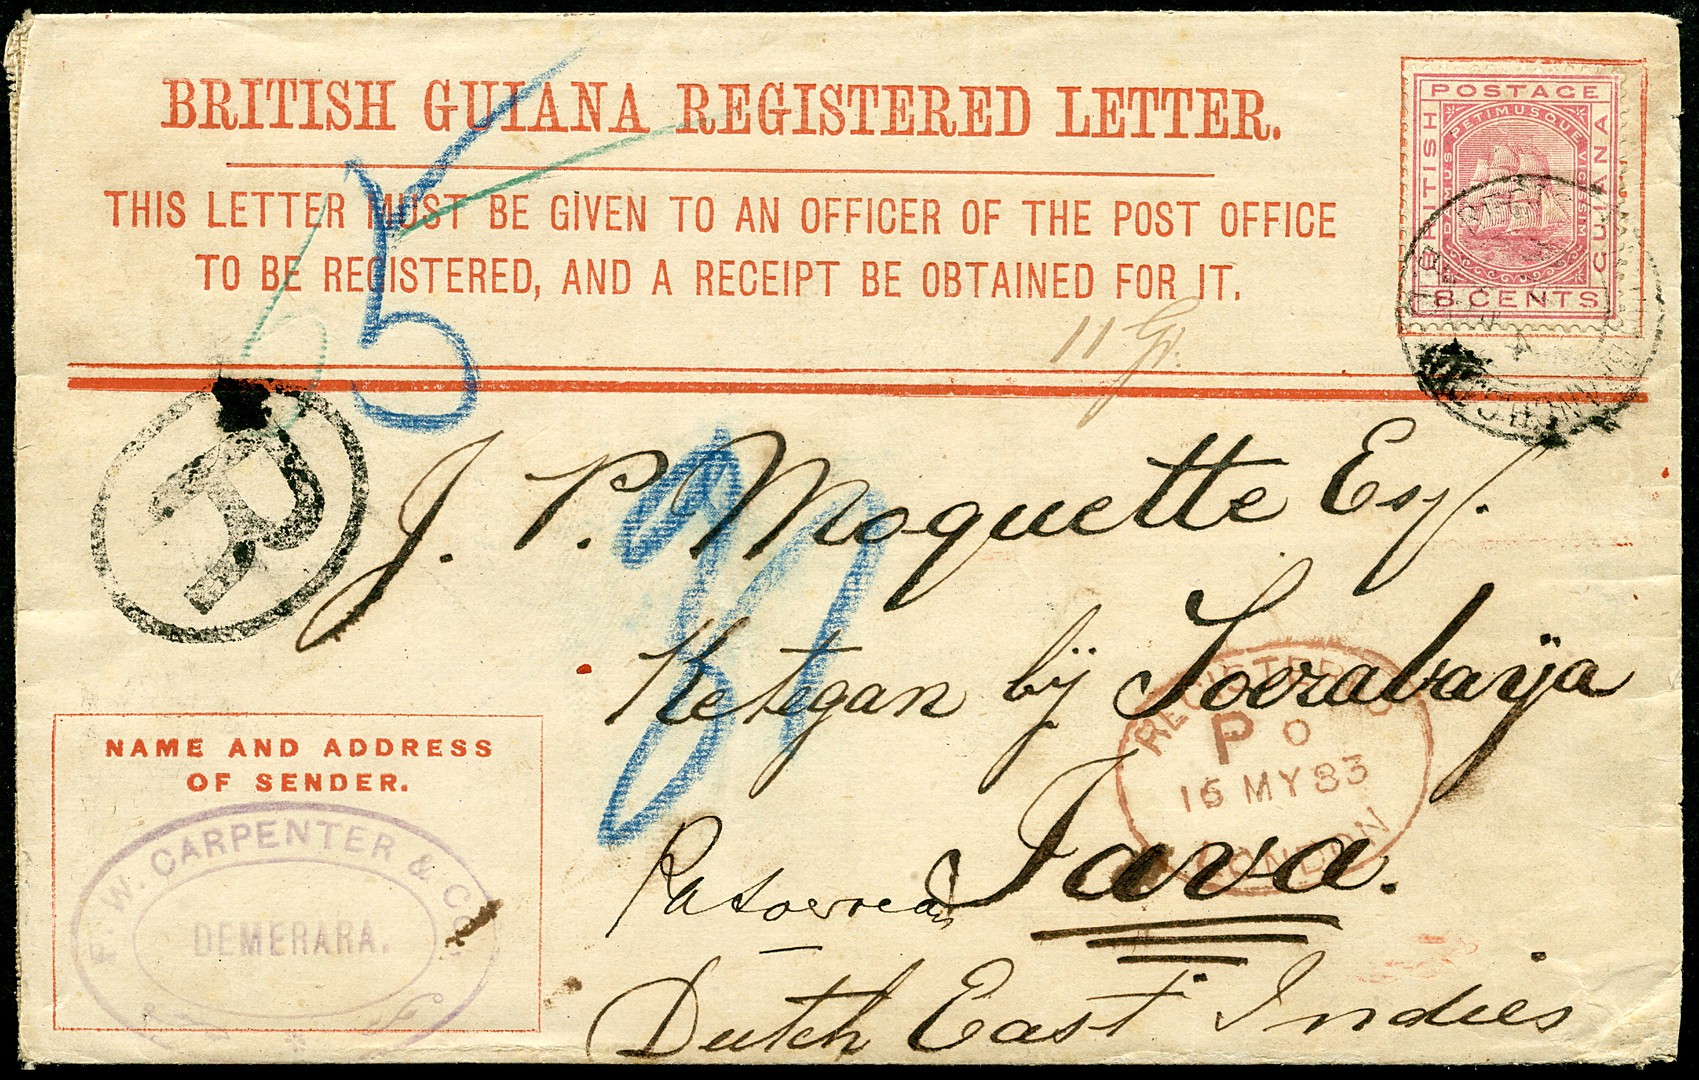 BRITISH GUIANA REGISTERED LETTER.
THIS LETTER MUST BE GIVEN TO AN OFFICER OF THE POST OFFICE
TO BE REGISTERED, AND A RECEIPT BE OBTAINED FOR IT.
POSTAGE
BRITISH
GUIANA
DAMUS PETIMUSQUE VICISSIM
8 CENTS
55
11 Gr.
R
J. P. Moquette Esq.
Ketegan bÿ Soerabaÿa
Java.
Pasoeroean
Dutch East Indies
REGISTERED
P O
16 MY 83
LONDON
NAME AND ADDRESS
OF SENDER.
F. W. CARPENTER & CO.
DEMERARA.